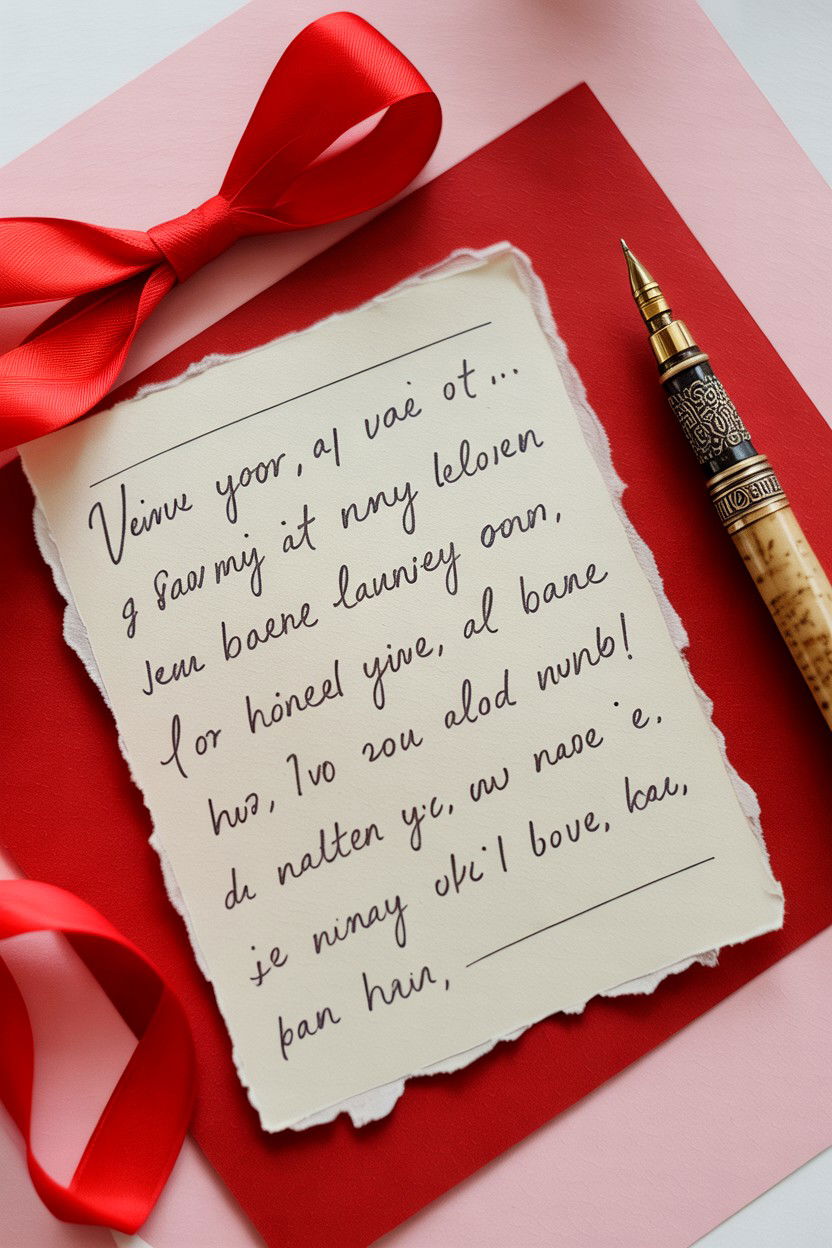 Veinve yoor, al vaé ot...
g Saov mij ät nny leloren
Jeur baene launiey oonn,
for höneel yive, al bane
hus, Ivo zou alod nunb!
du nalten y'c, uw naoe 'e.
je ninay okc'l bove, kae,
pan hain,